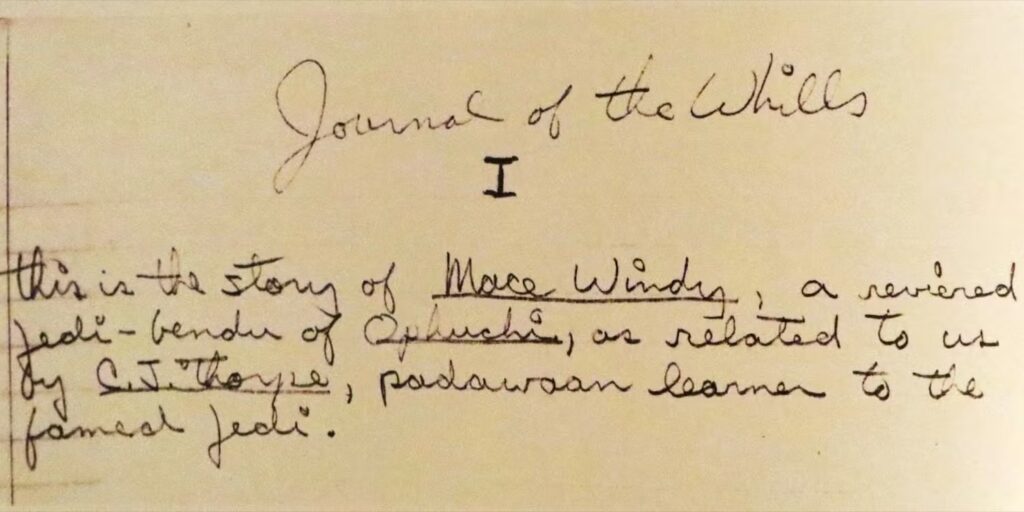 Journal of the Whills
I
this is the story of Mace Windy, a reviered
Jedi-bendu of Ophuchi, as related to us
by C.J. Thorpe, padawaan learner to the
famed Jedi.